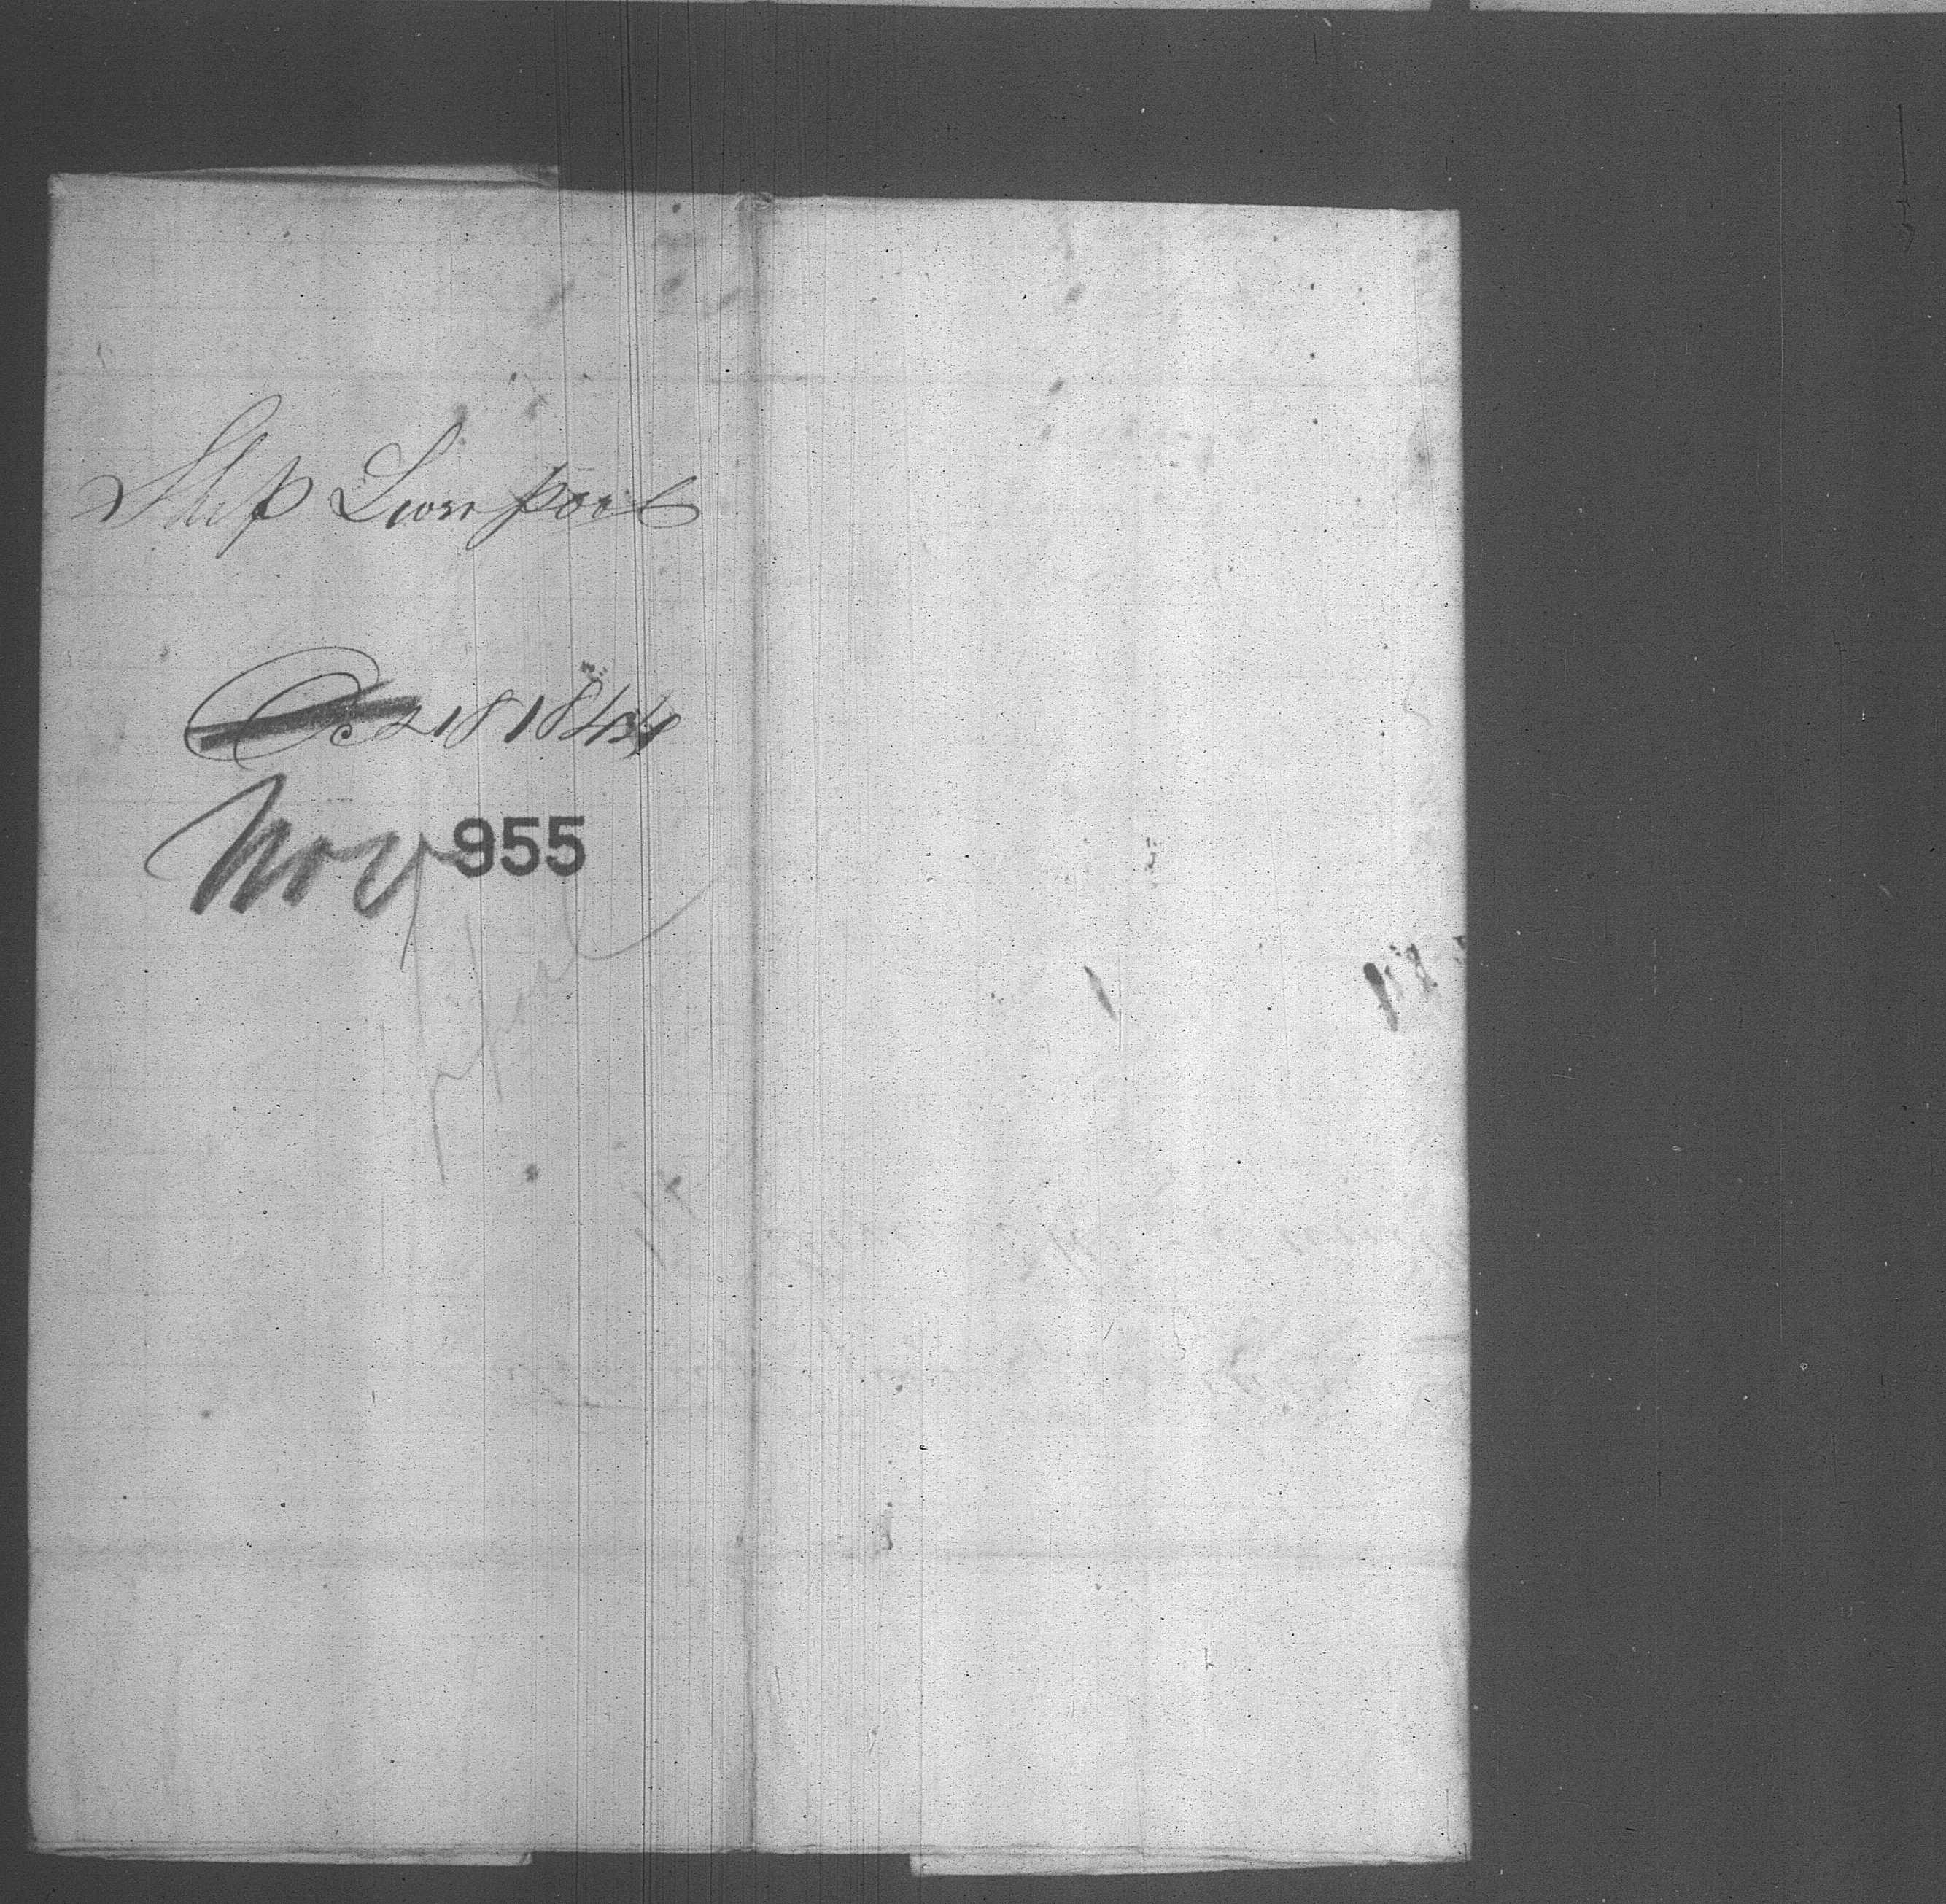 Ship Liverpool
Oct 18 1844
Nov 955